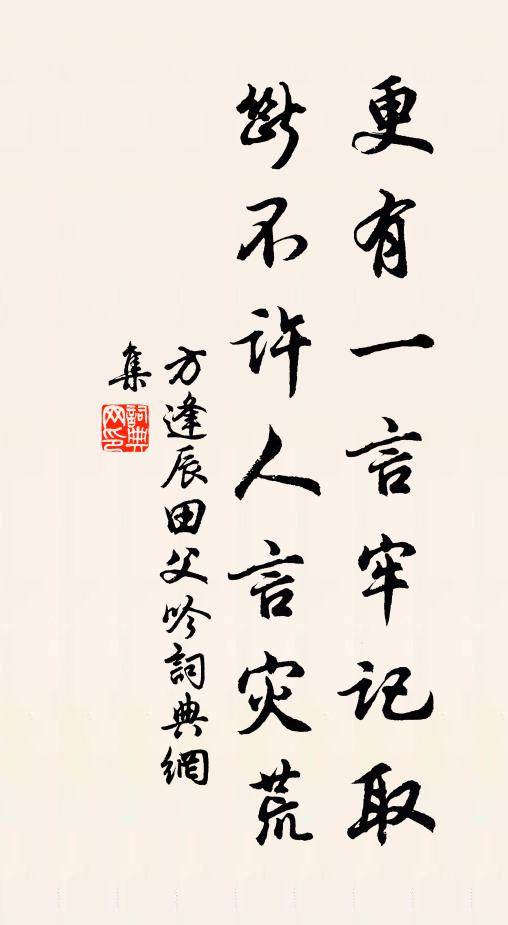 更有一言牢记取
断不许人言灾荒
方逢辰田父吟詞典網
集
詞典
网印